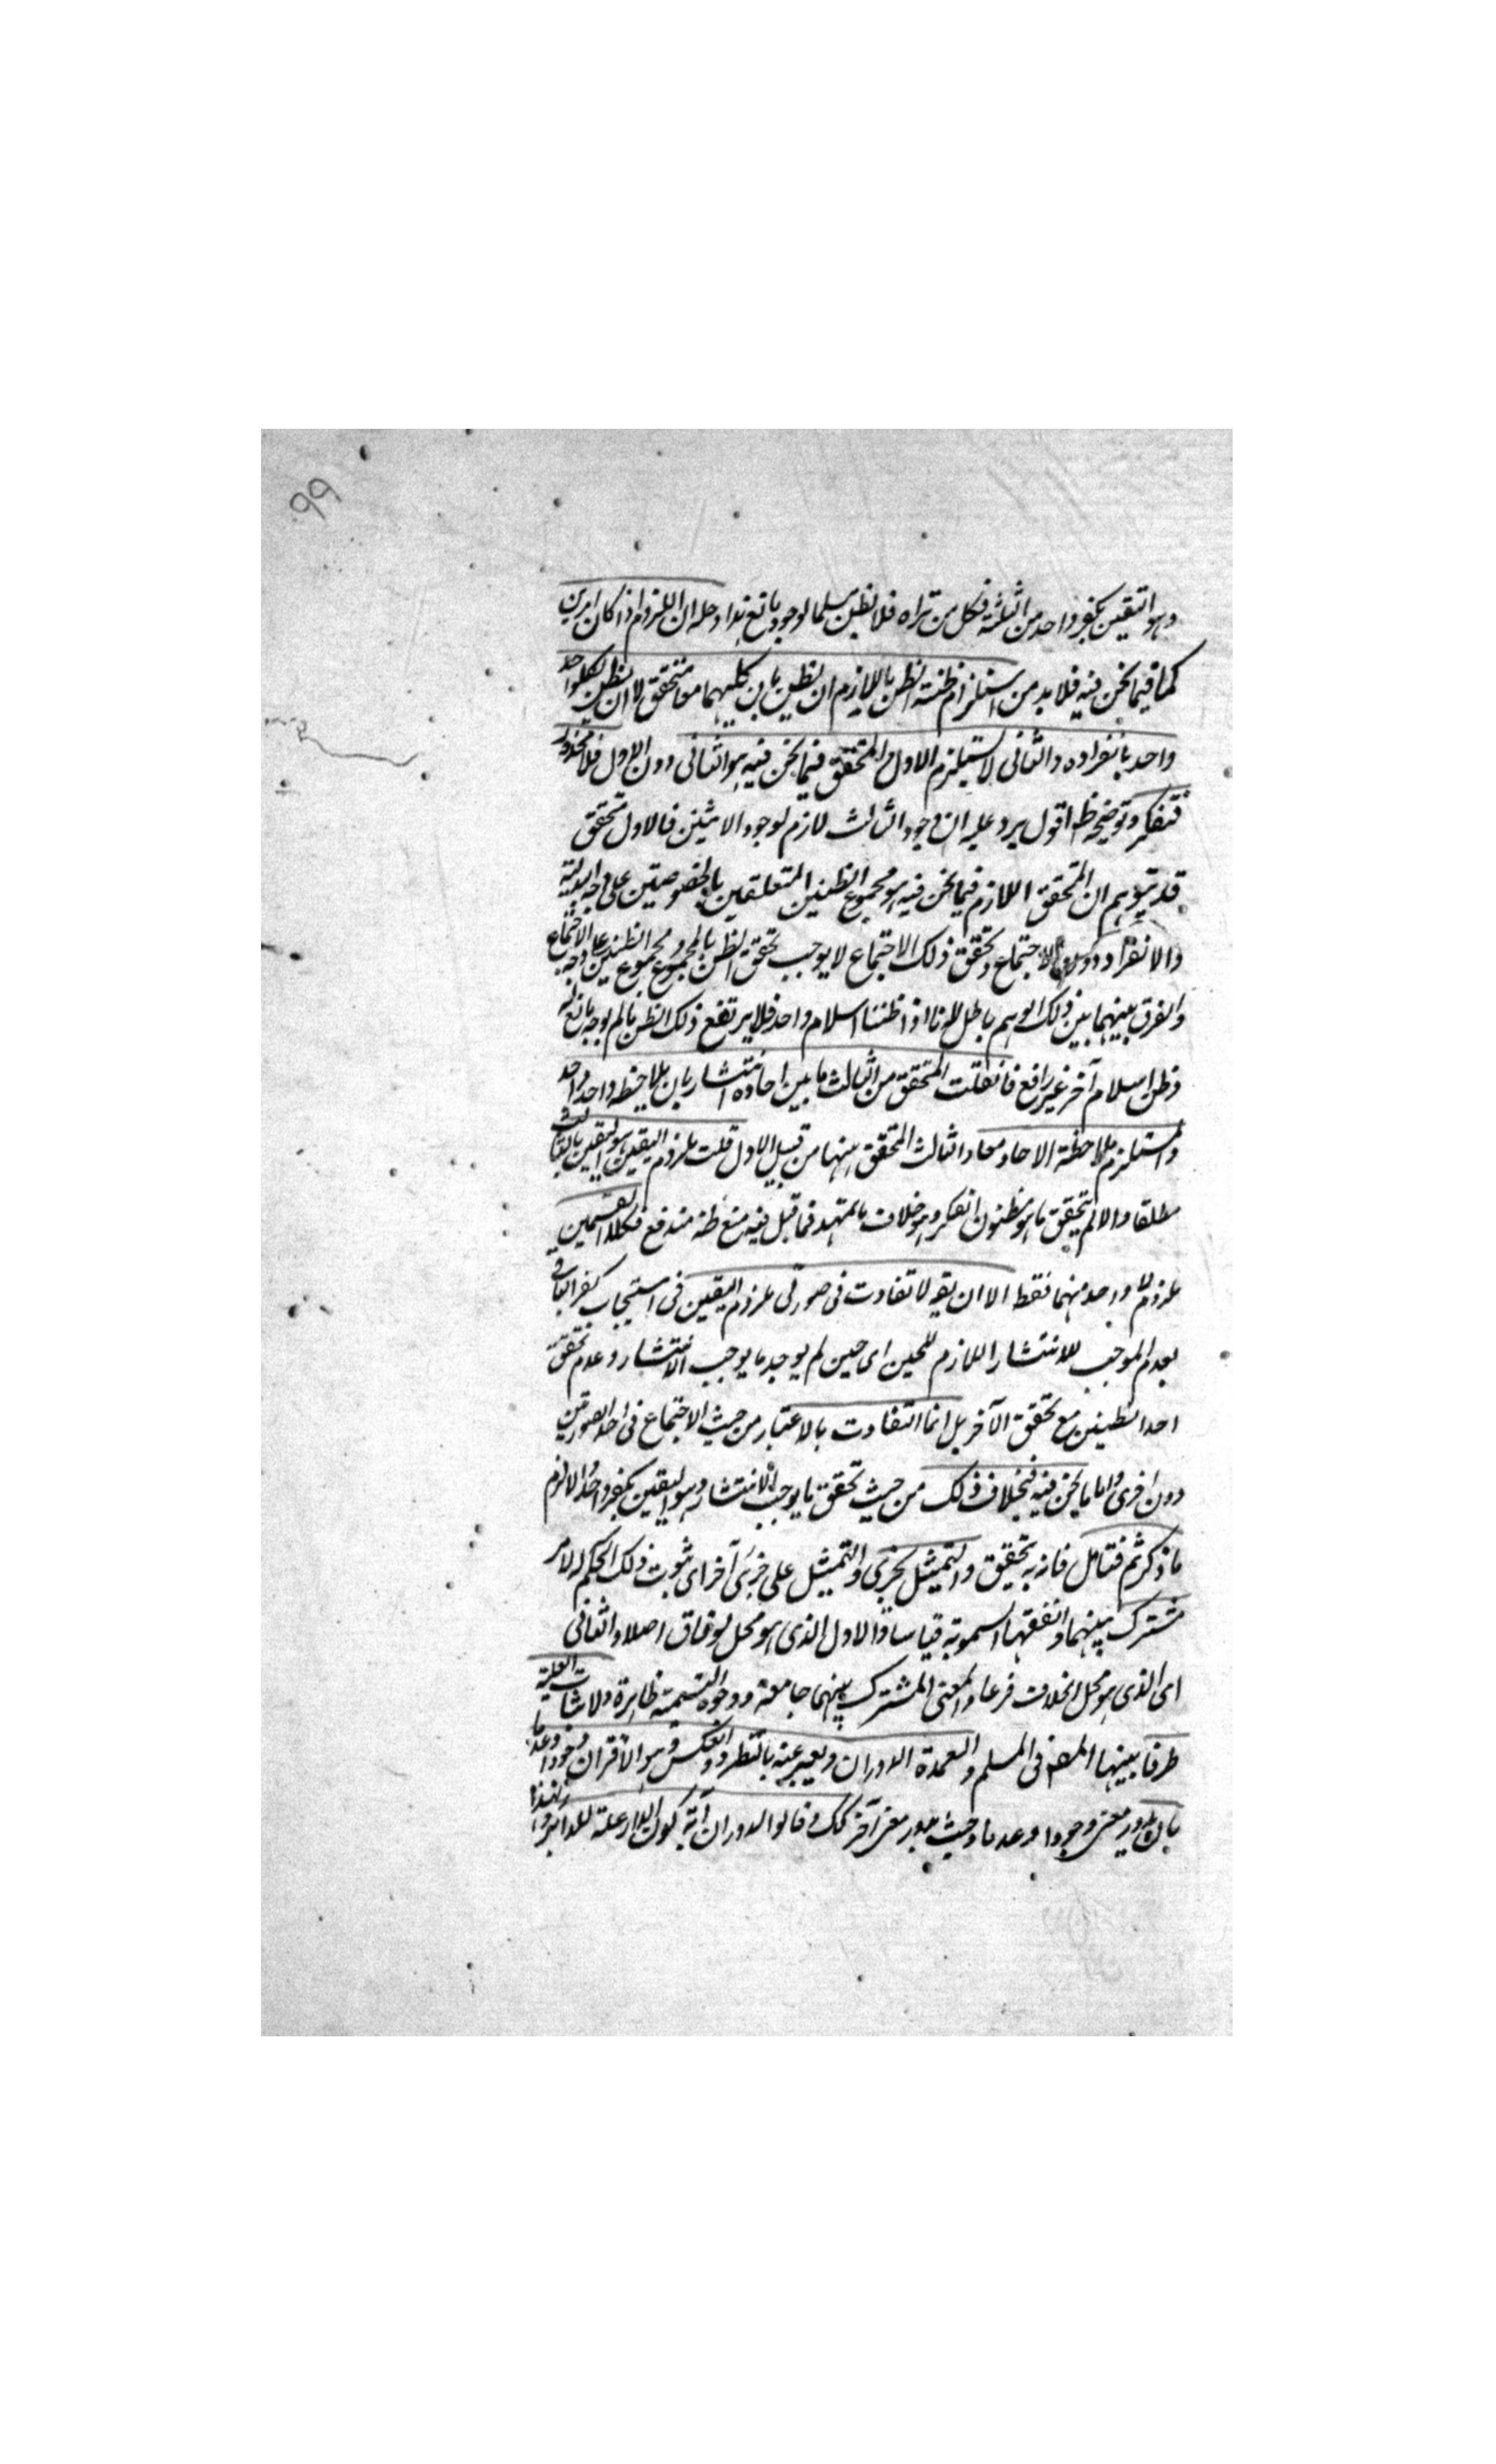 ۹۹
وهو اليقين بكفر واحد من الثلثة فكل من تراه فلا تظن مسلما لوجود مانع هذا وحله ان اللزوم اذا كان امرين
كما فيما نحن فيه فلا بد من استلزام ظنه الظن باللازم ان يظن بان كليهما معا متحقق لا ان يظن لكل واحد
واحد بانفراده والثانى لا يستلزم الاول والمتحقق فيما نحن فيه هو الثانى دون الاول فلا محذور
فتفكر وتوضيحه ظ اقول يرد عليه ان وجود الثالث لازم لوجود الاثنين فالاول متحقق
قد يتوهم ان المتحقق اللازم فيما نحن فيه هو مجموع الظنين المتعلقين بالخصوصيتين على وجه البدلية
والانفراد دون الاجتماع وتحقق ذلك الاجتماع لا يوجب تحقق الظن بالمجموع ومجموع الظنين على وجه الاجتماع
والفرق بينهما بين ذلك الوهم باطل لانا اذا ظننا اسلام واحد فلا يرتفع ذلك الظن ما لم يوجد مانع له
وظن اسلام آخر غير رافع فان قلت المتحقق من الثالث ما بين احاده انتشار بان يلاحظ واحد واحد
والمستلزم ملاحظة الاحاد معا والثالث المتحقق بينها من قبيل الاول قلت ملزوم اليقين هو اليقين بالثالث
مطلقا والا لم يتحقق ما هو مظنون الفكر وهو خلاف ما تمهد فما قيل فيه منع ظنه مندفع فكلا القسمين
ملزوم لا واحد منهما فقط الا ان يقو لا تفاوت فى صورتى ملزوم اليقين فى استيجاب كفر الباقى
بعدم الموجب للانتشار اللازم للحين اى حين لم يوجد ما يوجب الانتشار وعدم تحقق
احد الظنين مع تحقق الآخر بل انما التفاوت بالاعتبار من حيث الاجتماع فى احد الصورتين
دون اخرى واما ما نحن فيه فبخلاف ذلك من حيث تحقق ما يوجب الانتشار وهو اليقين بكفر واحد والا لزم
ما ذكر ثم فتامل فانه به تحقيق والتمثيل بجزئى والتمثيل على جزئى آخر اى ثبوت ذلك الحكم لامر
مشترك بينهما والفقهاء سموته قياسا والاول الذى هو محل الوفاق اصلا والثانى
اى الذى هو محل الخلاف فرعا والمعنى المشترك بينهما جامعة ووجوه التسمية ظاهرة ولاثبات العلية
طرق بينها المصنف فى المسلم والعمدة الدوران ويعبر عنه بالطرد والعكس وهو الاقتران وجودا وعدما
بان يدور معنى وجودا وعدما وحيث يدور معنى آخر كك وقالوا الدوران آية كون المدار علة للدائر